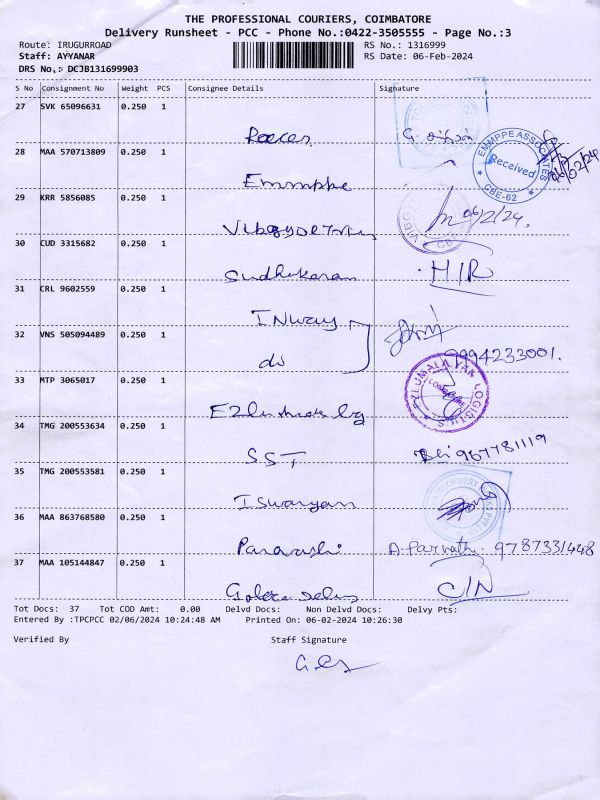 THE PROFESSIONAL COURIERS, COIMBATORE
Delivery Runsheet - PCC - Phone No.:0422-3505555 - Page No.:3
Route: IRUGURROAD
RS No.: 1316999
Staff: AYYANAR
RS Date: 06-Feb-2024
DRS No.: DCJB131699903
S No Consignment No Weight PCS Consignee Details Signature
27 SVK 65096631 0.250 1
28 MAA 570713809 0.250 1 Emmphe
EMMPPE ASSOCIATES
Received
CBE-62
29 KRR 5856085 0.250 1
06/2/24.
30 CUD 3315682 0.250 1 Sudhakaran
H/R
31 CRL 9602559 0.250 1 INway
32 VNS 505094489 0.250 1 do
9994233001.
33 MTP 3065017 0.250 1
34 TMG 200553634 0.250 1 SST
967781119
35 TMG 200553581 0.250 1 Iswaryam
36 MAA 863768580 0.250 1
A. Parvathi: 9787331448
37 MAA 105144847 0.250 1
C/N
Tot Docs: 37 Tot COD Amt: 0.00 Delvd Docs: Non Delvd Docs: Delvy Pts:
Entered By :TPCPCC 02/06/2024 10:24:48 AM Printed On: 06-02-2024 10:26:30
Verified By Staff Signature